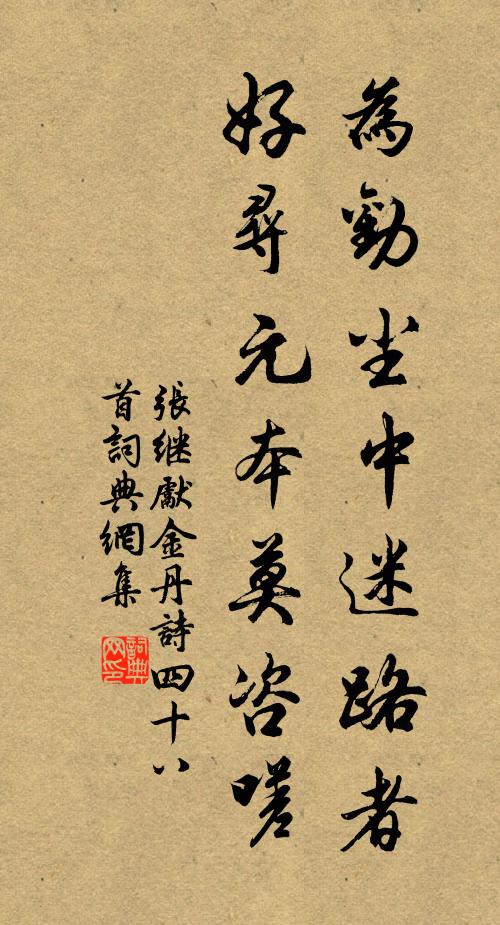 為勸尘中迷路者
好尋元本莫咨嗟
張继獻金丹詩四十八
首詞典網集
詞典
网印